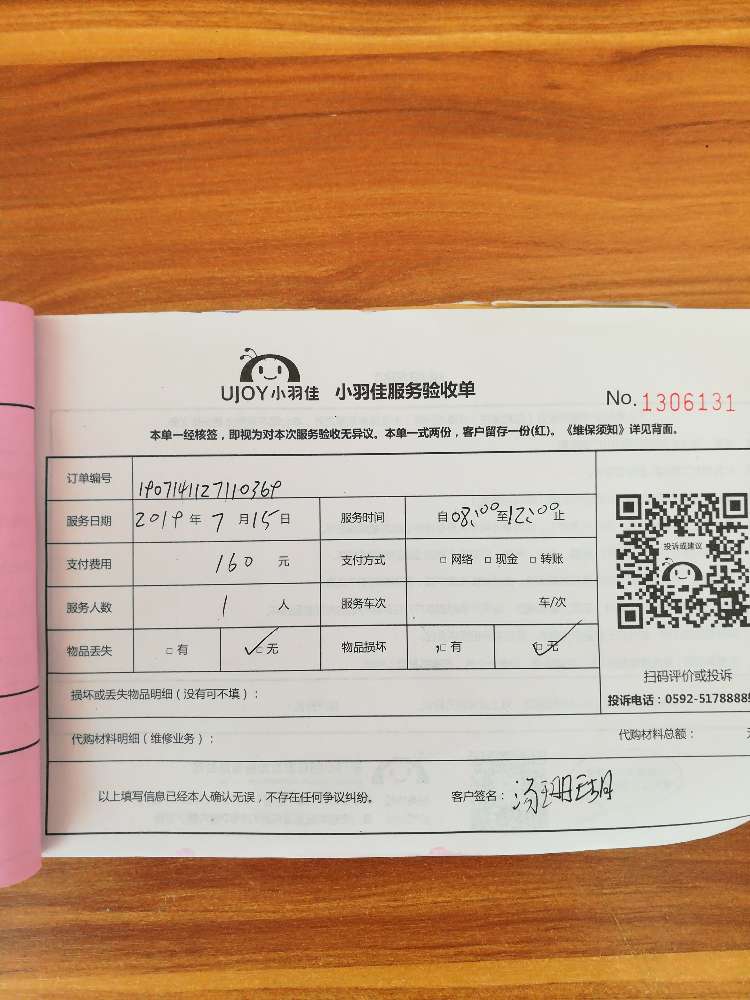 UJOY小羽佳 小羽佳服务验收单
No. 1306131
本单一经核签，即视为对本次服务验收无异议。本单一式两份，客户留存一份(红)。《维保须知》详见背面。
订单编号 1907141127110369
服务日期 2019年7月15日 服务时间 自08:00至12:00止
支付费用 160元 支付方式 □网络 □现金 □转账
服务人数 1人 服务车次 车/次
物品丢失 □有 □无 物品损坏 □有 □无
投诉或建议
扫码评价或投诉
投诉电话：0592-5178888
损坏或丢失物品明细（没有可不填）：
代购材料明细（维修业务）： 代购材料总额：
以上填写信息已经本人确认无误，不存在任何争议纠纷。 客户签名：